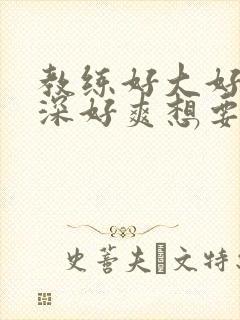 教练好大好
深好爽想要
史蒈夫文特